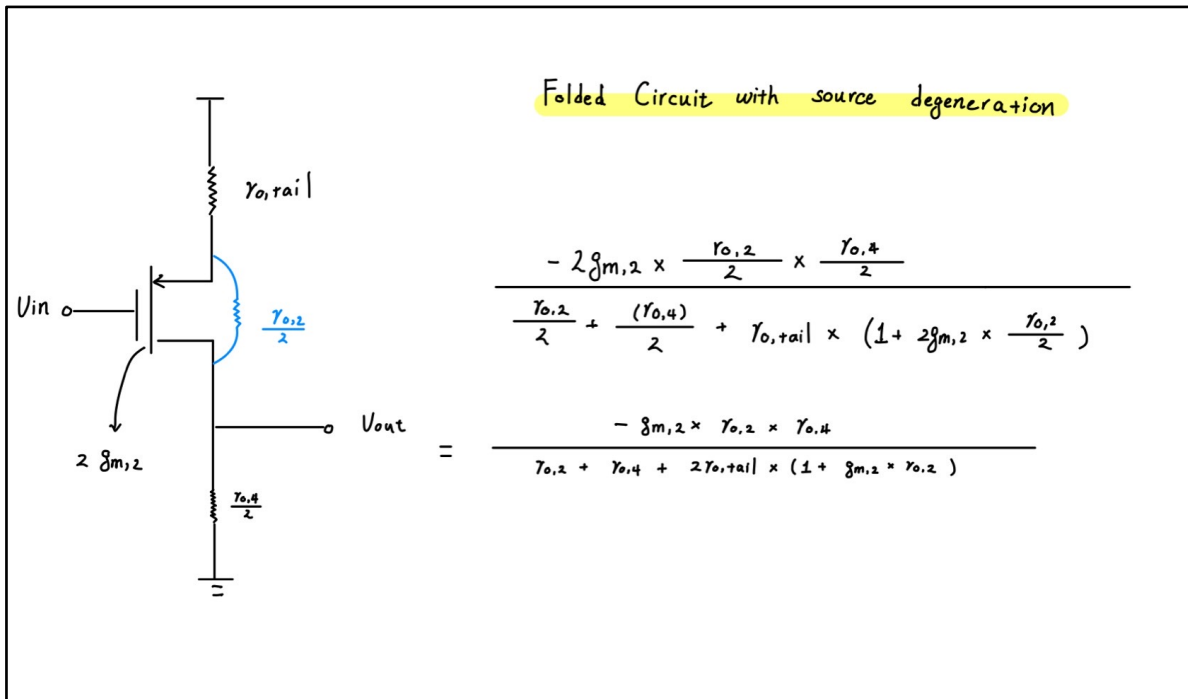 Folded Circuit with source degeneration
r₀,tail
Vin
r₀,₂/2
2 gm,2
Vout
r₀,₄/2
- 2gm,2 × r₀,₂/2 × r₀,₄/2
r₀,₂/2 + (r₀,₄)/2 + r₀,tail × (1 + 2gm,2 × r₀,₂/2 )
= - gm,2 × r₀,₂ × r₀,₄
r₀,₂ + r₀,₄ + 2r₀,tail × (1 + gm,2 × r₀,₂ )